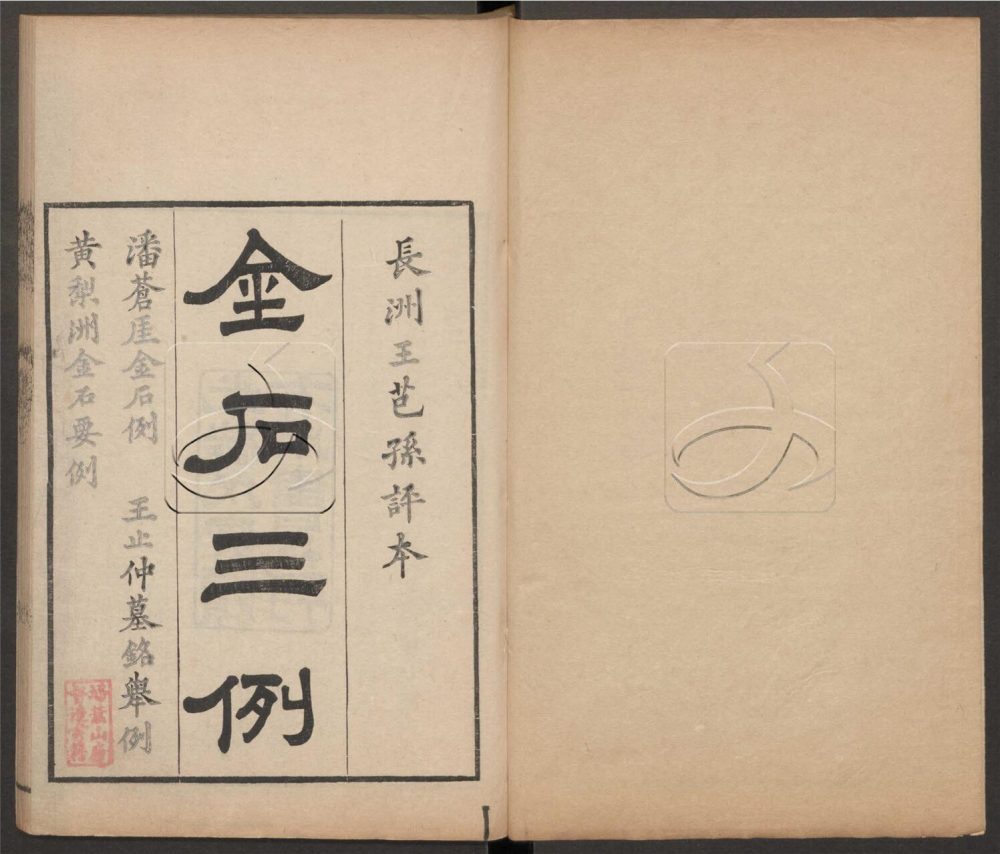 長洲王芑孫評本
金石三例
潘蒼厓金石例 王止仲墓銘舉例
黃梨洲金石要例